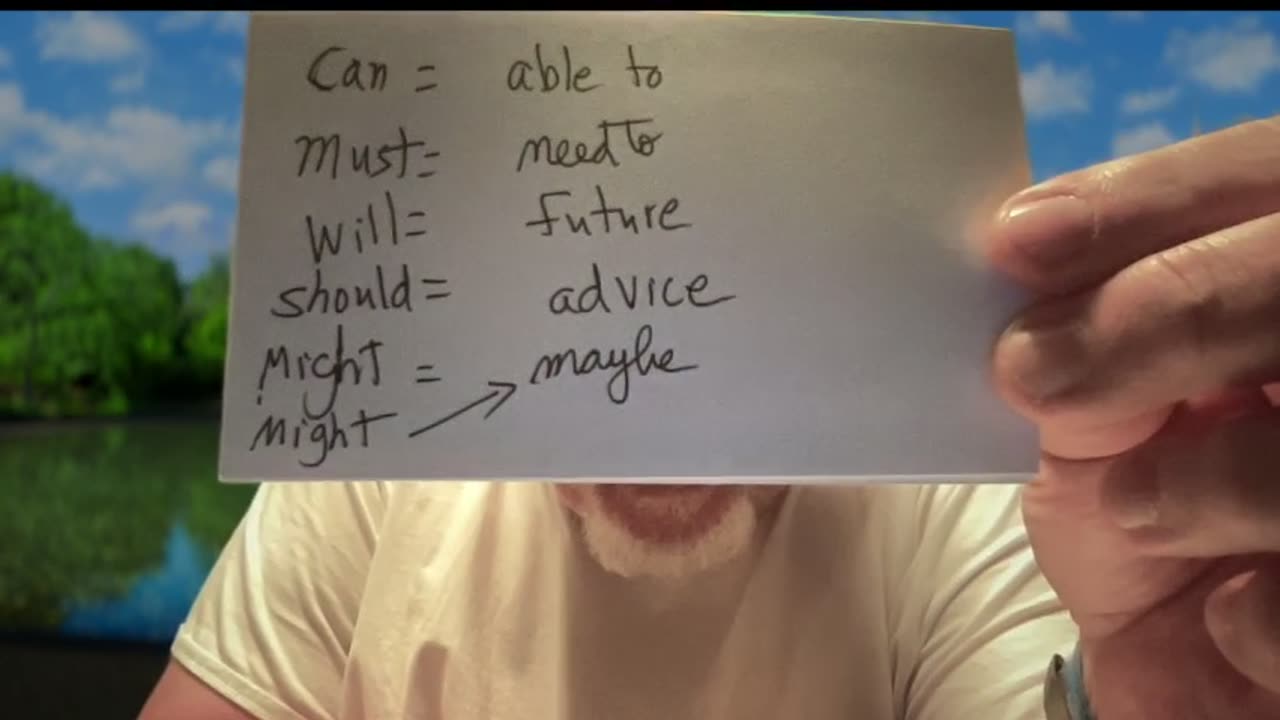 Can = able to
Must= need to
Will= future
should= advice
Might = maybe
Might →